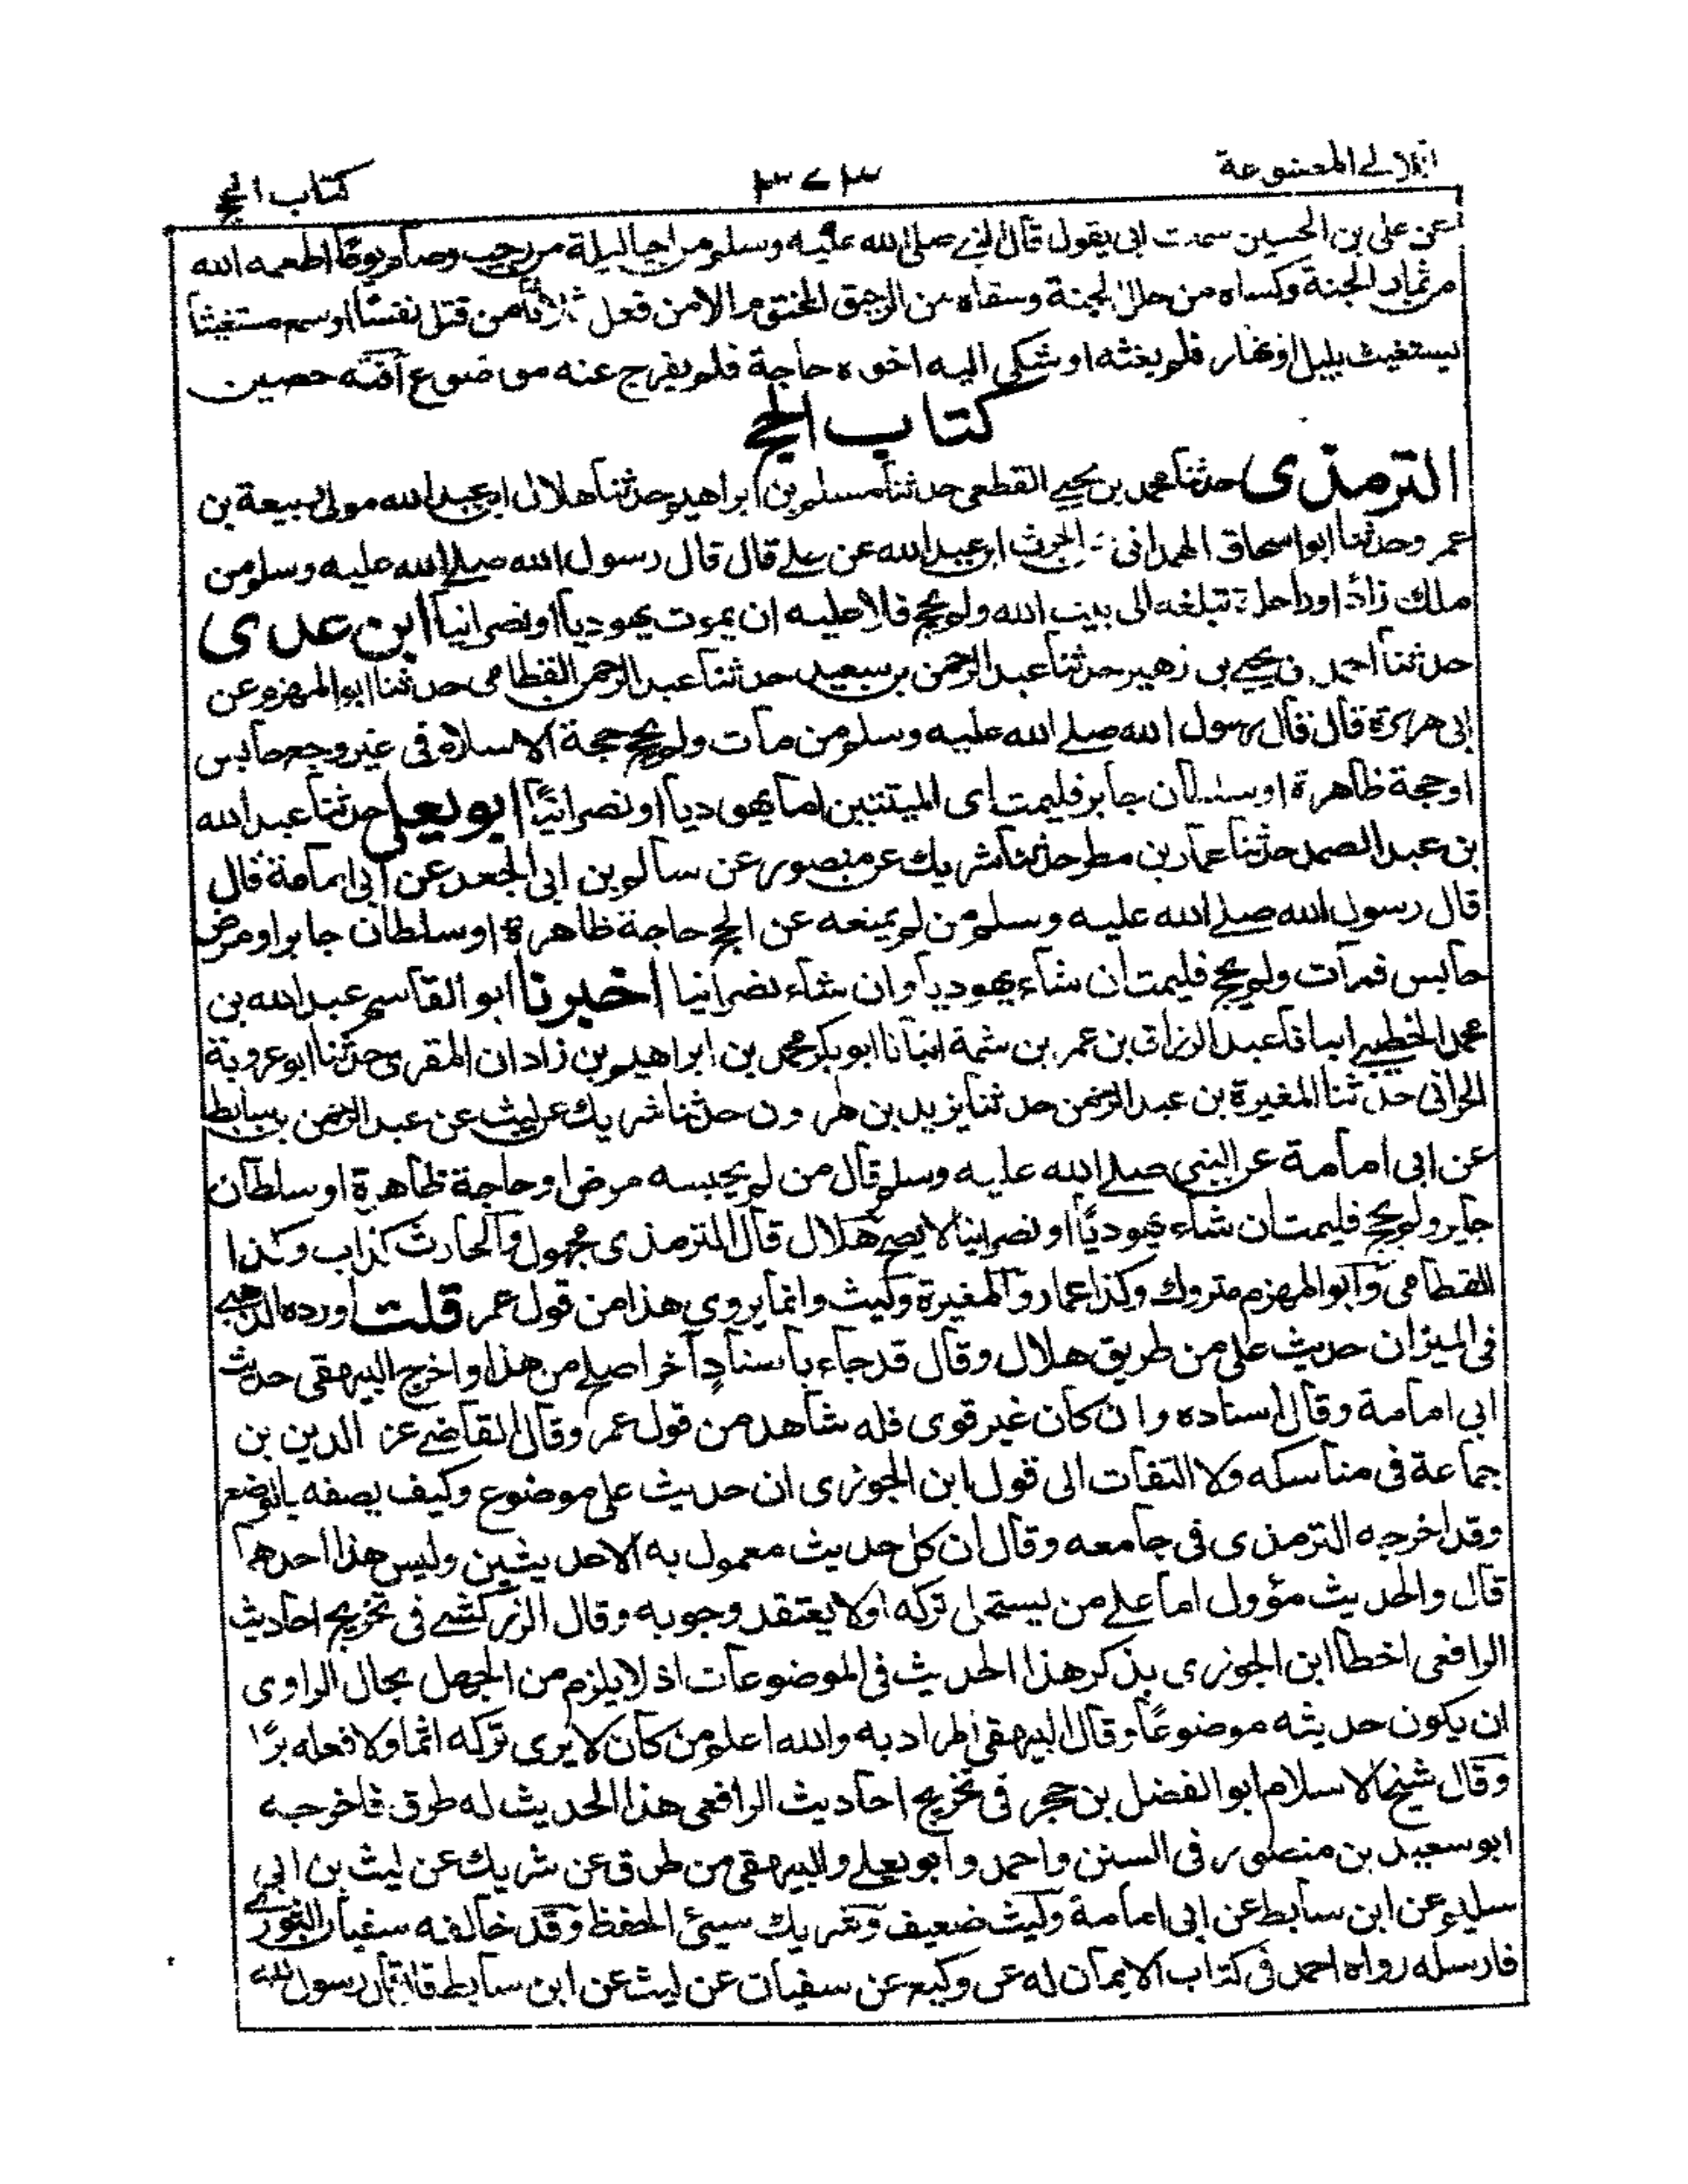 اللآلي المصنوعة
٣٧٣
كتاب الحج
عن علي بن الحسين سمعت ابي يقول قال النبي صلى الله عليه وسلم من احيا ليلة من رجب وصام يوما اطعمه الله
من ثمار الجنة وكساه من حلل الجنة وسقاه من الرحيق المختوم الا من فعل ثلاثا من قتل نفسًا او سمع مستغيثا
يستغيث بليل او نهار فلم يغثه او شكى اليه اخوه حاجة فلم يفرج عنه موضوع آفته حصين
كتاب الحج
الترمذى حدثنا محمد بن يحيى القطعى حدثنا مسلم بن ابراهيم حدثنا هلال ابن عبد الله مولى ربيعة بن
عمر وحدثنا ابو اسحاق الهمدانى عن الحرث ابن عبد الله عن على قال قال رسول الله صلى الله عليه وسلم من
ملك زادًا او راحلة تبلغه الى بيت الله ولم يحج فلا عليه ان يموت يهوديا او نصرانيا ابن عدى
حدثنا احمد بن يحيى بن زهير حدثنا عبد الرحمن بن سعيد حدثنا عبد الرحمن القطامى حدثنا ابو المهزم عن
ابى هريرة قال قال رسول الله صلى الله عليه وسلم من مات ولم يحج حجة الاسلام فى غير وجع حابس
او حجة ظاهرة او سلطان جابر فليمت اى الميتتين اما يهوديا او نصرانيًا ابو يعلى حدثنا عبد الله
بن عبد الصمد حدثنا عمار بن مطر حدثنا شريك عن منصور عن سالم بن ابى الجعد عن ابى امامة قال
قال رسول الله صلى الله عليه وسلم من لم يمنعه عن الحج حاجة ظاهرة او سلطان جابر او مرض
حابس فمات ولم يحج فليمت ان شاء يهوديا وان شاء نصرانيا اخبرنا ابو القاسم عبد الله بن
محمد الخطيب انبانا عبد الرزاق بن عمر بن شمة انبانا ابو بكر محمد بن ابراهيم بن زادان المقرى حدثنا ابو عروبة
الحرانى حدثنا المغيرة بن عبد الرحمن حدثنا يزيد بن هرون حدثنا شريك عن ليث عن عبد الرحمن بن سابط
عن ابى امامة عن النبى صلى الله عليه وسلم قال من لم يحبسه مرض او حاجة ظاهرة او سلطان
جاير ولم يحج فليمت ان شاء يهوديًا او نصرانيا لا يصح هلال قال الترمذى مجهول والحارث كذاب وكذا
القطامى وابو المهزم متروك وكذا عمار والمغيرة وليث وانما يروى هذا من قول عمر قلت اورده الذهبى
فى الميزان حديث على من طريق هلال وقال قد جاء باسناد آخر اصلح من هذا واخرج البيهقى حديث
ابى امامة وقال اسناده وان كان غير قوى فله شاهد من قول عمر وقال القاضى عز الدين بن
جماعة فى مناسكه ولا التفات الى قول ابن الجوزى ان حديث على موضوع وكيف يصفه بالوضع
وقد اخرجه الترمذى فى جامعه وقال ان كل حديث معمول به الا حديثين وليس هذا احدهما
قال والحديث مؤول اما على من يستحل تركه او لا يعتقد وجوبه وقال الزركشى فى تخريج احاديث
الرافعى اخطا ابن الجوزى بذكر هذا الحديث فى الموضوعات اذ لا يلزم من الجهل بحال الراوى
ان يكون حديثه موضوعًا وقال البيهقى المراد به والله اعلم من كان لا يرى تركه اثما ولا فعله برًا
وقال شيخ الاسلام ابو الفضل بن حجر فى تخريج احاديث الرافعى هذا الحديث له طرق فاخرجه
ابو سعيد بن منصور فى السنن واحمد وابو يعلى والبيهقى من طرق عن شريك عن ليث بن ابى
سليم عن ابن سابط عن ابى امامة وليث ضعيف وشريك سيئ الحفظ وقد خالفه سفيان الثورى
فارسله رواه احمد فى كتاب الايمان له عن وكيع عن سفيان عن ليث عن ابن سابط قال قال رسول الله